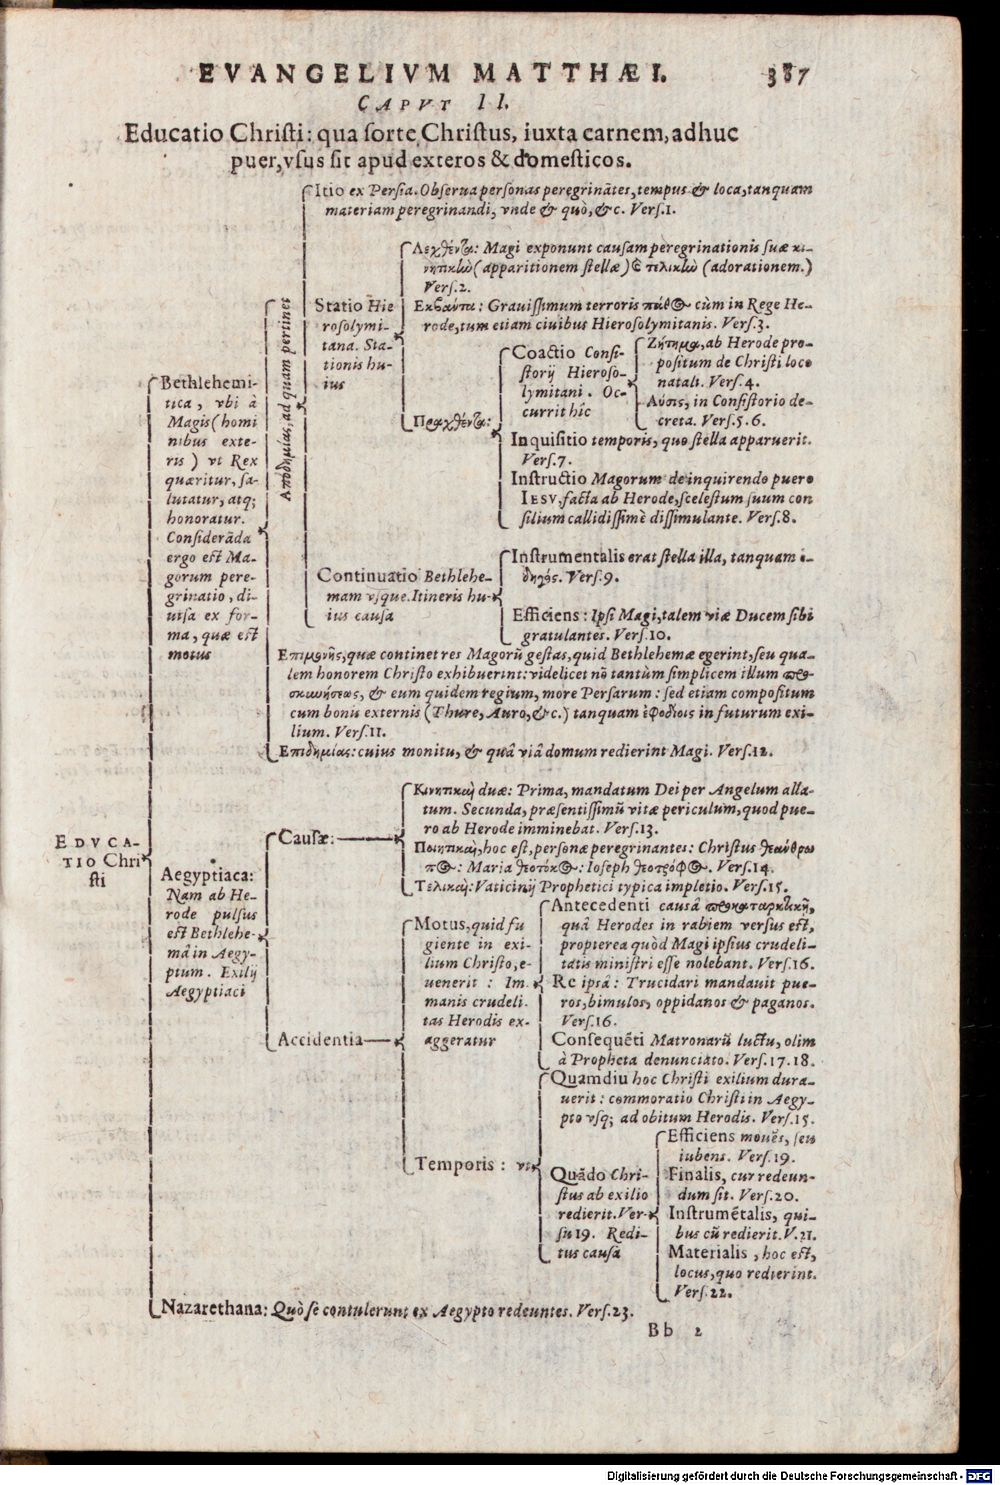 EVANGELIVM MATTHÆI. 387
CAPVT II.
Educatio Christi: qua sorte Christus, iuxta carnem, adhuc
puer, vsus sit apud exteros & domesticos.
Itio ex Persia. Obserua personas peregrinãtes, tempus & loca, tanquam
materiam peregrinandi, vnde & quò, &c. Vers.1.
Λεχθέντα: Magi exponunt causam peregrinationis suæ κι-
νητικὼ (apparitionem stellæ) & τελικὼ (adorationem.)
Vers.2.
Statio Hie
rosolymi-
tana. Sta-
tionis hu-
ius
Εκβάντα: Grauissimum terroris πάθος cùm in Rege He-
rode, tum etiam ciuibus Hierosolymitanis. Vers.3.
Πραχθέντα:
Coactio Consi-
storij Hieroso-
lymitani. Oc-
currit hîc
Ζήτημα, ab Herode pro-
positum de Christi loco
natali. Vers.4.
Λύσις, in Consistorio de-
creta. Vers.5.6.
Inquisitio temporis, quo stella apparuerit.
Vers.7.
Instructio Magorum de inquirendo puero
IESV, facta ab Herode, scelestum suum con
silium callidissimè dissimulante. Vers.8.
Αποδημίας, ad quam pertinet
Bethlehemi-
tica, vbi à
Magis (homi
nibus exte-
ris) vt Rex
quæritur, sa-
lutatur, atq;
honoratur.
Considerãda
ergo est Ma-
gorum pere-
grinatio, di-
uisa ex for-
ma, quæ est
motus
Continuatio Bethlehe-
mam vsque. Itineris hu-
ius causa
Instrumentalis erat stella illa, tanquam ὁ-
δηγός. Vers.9.
Efficiens: Ipsi Magi, talem viæ Ducem sibi
gratulantes. Vers.10.
Επιμονῆς, quæ continet res Magorũ gestas, quid Bethlehemæ egerint, seu qua-
lem honorem Christo exhibuerint: videlicet nõ tantùm simplicem illum προ-
σκυνήσεως, & eum quidem regium, more Persarum: sed etiam compositum
cum bonis externis (Thure, Auro, &c.) tanquam ἐφοδίοις in futurum exi-
lium. Vers.11.
Επιδημίας: cuius monitu, & quâ viâ domum redierint Magi. Vers.12.
EDVCA-
TIO Chri
sti
Aegyptiaca:
Nam ab He-
rode pulsus
est Bethlehe-
mâ in Aegy-
ptum. Exilij
Aegyptiaci
Causæ:
Κινητικαὶ duæ: Prima, mandatum Dei per Angelum alla-
tum. Secunda, præsentissimũ vitæ periculum, quod pue-
ro ab Herode imminebat. Vers.13.
Ποιητικαὶ, hoc est, personæ peregrinantes: Christus θεάνθρω
πος: Maria θεοτόκος: Ioseph θεοτρόφος. Vers.14.
Τελικαὶ: Vaticinij Prophetici typica impletio. Vers.15.
Accidentia
Motus, quid fu
giente in exi-
lium Christo, e-
uenerit: Im-
manis crudeli-
tas Herodis ex-
aggeratur
Antecedenti causâ προκαταρκτικῇ,
quâ Herodes in rabiem versus est,
propterea quòd Magi ipsius crudeli-
tatis ministri esse nolebant. Vers.16.
Re ipsâ: Trucidari mandauit pue-
ros, bimulos, oppidanos & paganos.
Vers.16.
Consequẽti Matronarũ luctu, olim
à Propheta denunciato. Vers.17.18.
Temporis: vt
Quamdiu hoc Christi exilium dura-
uerit: commoratio Christi in Aegy-
pto vsq; ad obitum Herodis. Vers.15.
Quãdo Chri-
stus ab exilio
redierit. Ver-
su 19. Redi-
tus causâ
Efficiens mouẽs, seu
iubens. Vers.19.
Finalis, cur redeun-
dum sit. Vers.20.
Instrumẽtalis, qui-
bus cũ redierit. V.21.
Materialis, hoc est,
locus, quo redierint.
Vers.22.
Nazarethana: Quò se contulerunt ex Aegypto redeuntes. Vers.23.
Bb 2
Digitalisierung gefördert durch die Deutsche Forschungsgemeinschaft - DFG